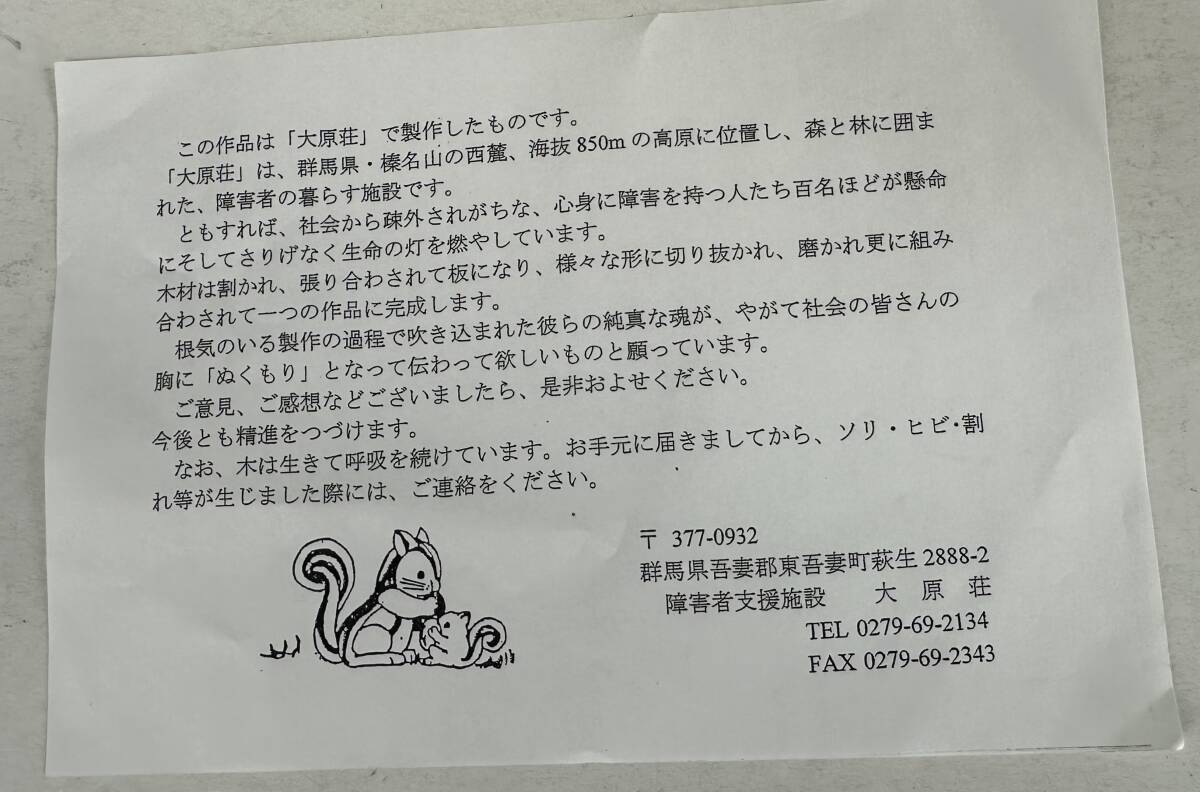 この作品は「大原荘」で製作したものです。
「大原荘」は、群馬県・榛名山の西麓、海抜850mの高原に位置し、森と林に囲ま
れた、障害者の暮らす施設です。
ともすれば、社会から疎外されがちな、心身に障害を持つ人たち百名ほどが懸命
にそしてさりげなく生命の灯を燃やしています。
木材は割かれ、張り合わされて板になり、様々な形に切り抜かれ、磨かれ更に組み
合わされて一つの作品に完成します。
根気のいる製作の過程で吹き込まれた彼らの純真な魂が、やがて社会の皆さんの
胸に「ぬくもり」となって伝わって欲しいものと願っています。
ご意見、ご感想などございましたら、是非およせください。
今後とも精進をつづけます。
なお、木は生きて呼吸を続けています。お手元に届きましてから、ソリ・ヒビ・割
れ等が生じました際には、ご連絡をください。
〒 377-0932
群馬県吾妻郡東吾妻町萩生2888-2
障害者支援施設 大 原 荘
TEL 0279-69-2134
FAX 0279-69-2343